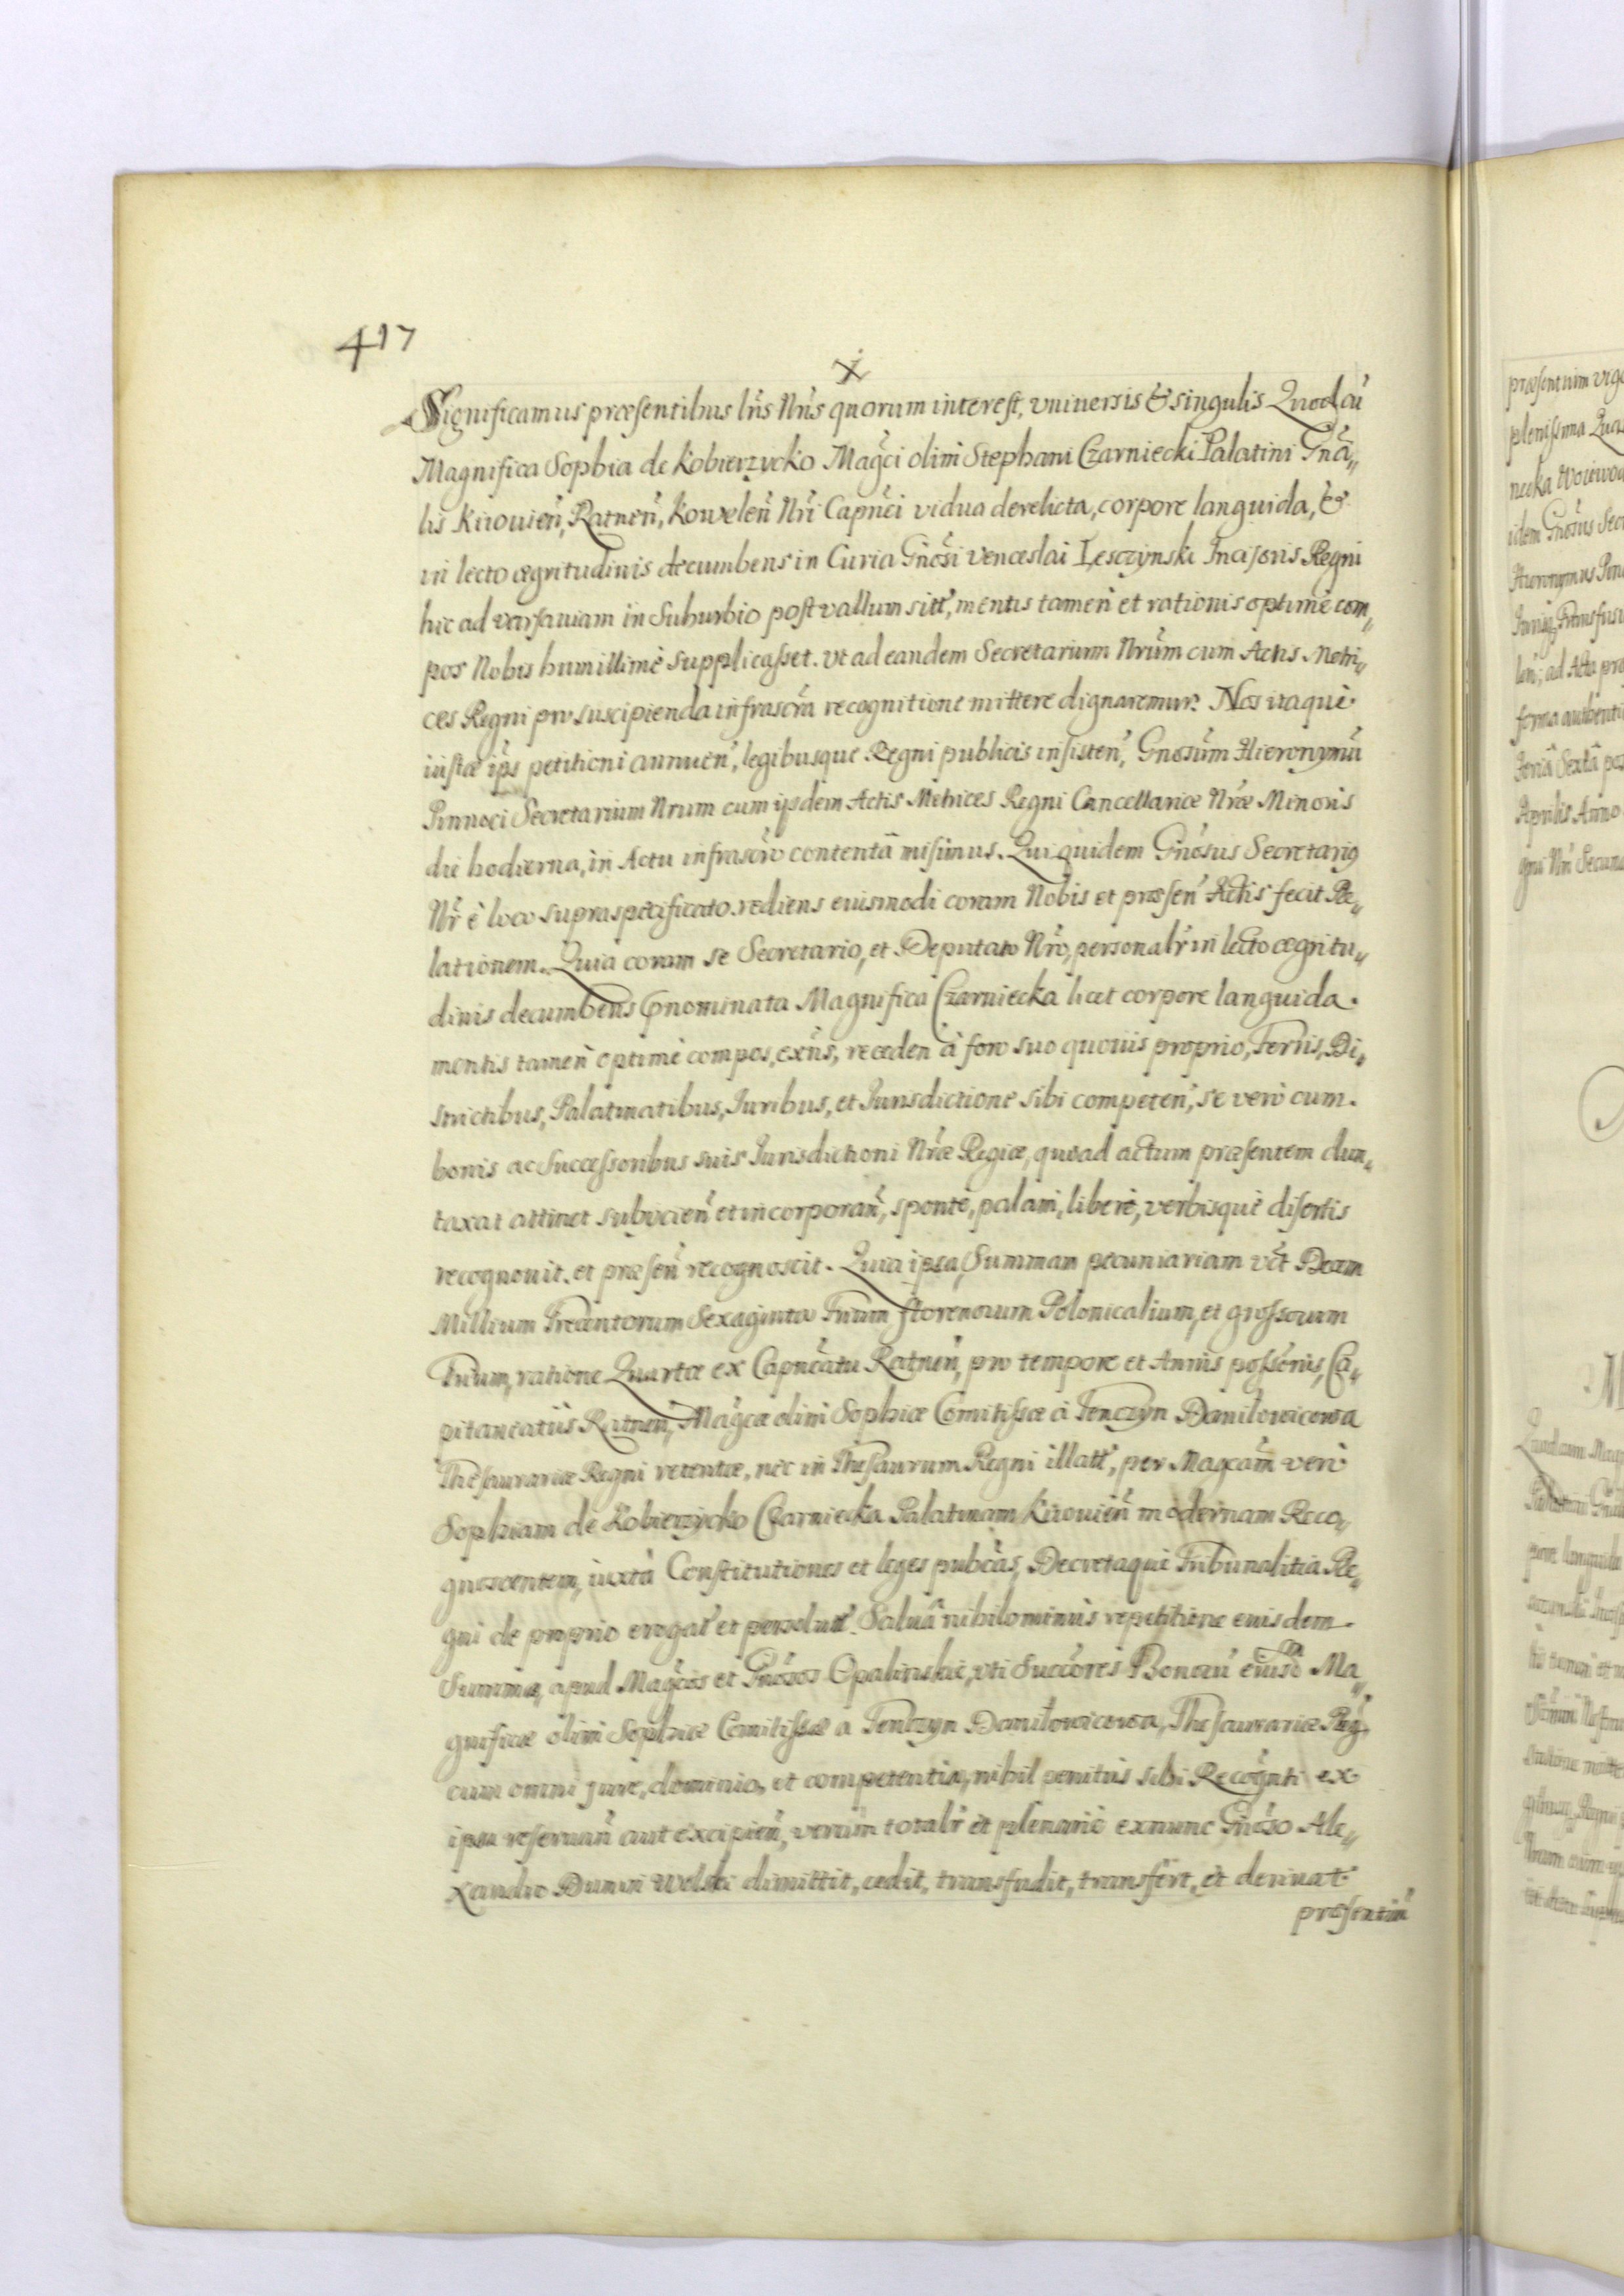 417
Significamus præsentibus lrīs Nrīs quorum interest, vniuersis & singulis Quod cū
Magnifica Sophia de Kobierzycko Magci olim Stephani Czarniecki Palatini Gnā„
lis Kiiouien̄, Ratnen̄, Kowelen̄ Nrī Capnei vidua derelicta, corpore languida, &
in lecto ægritudinis decumbens in Curia Gnosi Venceslai Lesczynski Incisoris Regni
hic ad Varsauiam in Suburbio post vallum sitt', mentis tamen et rationis optimè com„
pos Nobis humillimè supplicasset. vt ad eandem Secretarium Nrum cum Actis Metri„
ces Regni pro suscipienda infrascrā recognitione mittere dignaremur. Nos itaque
iustæ ips petitioni annuen', legibusque Regni publicis insisten', Gnosum Hieronymū
Pinnoci Secretarium Nrum cum ijsdem Actis Metrices Regni Cancellariæ Nræ Minoris
die hodierna, in Actu infrascro contentâ misimus. Qui quidem Gnosus Secretarig
Nr è loco supraspecificato rediens eiusmodi coram Nobis et præsen' Actis fecit Re„
lationem. Quia coram se Secretario, et Deputato Nro, personalr in lecto ægritu„
dinis decumbens pnominata Magnifica Czarniecka licet corpore languida.
mentis tamen optimè compos, exns, receden à foro suo quouis proprio, Terris, Di„
strictibus, Palatinatibus, Iuribus, et Iurisdictione sibi competen', se verò cum.
bonis ac Successoribus suis Iurisdictioni Nræ Regiæ, quoad actum præsentem dun„
taxat attinet subijcien̄ et incorporan̄, sponte, palam, liberè, verbisque disertis
recognouit, et præsen̄ recognoscit. Quia ipsa Summam pecuniariam vct Decem
Millium Trecentorum Sexaginta Trium florenorum Polonicalium, et grossorum
Trium, ratione Quartæ ex Capneatu Ratnen̄, pro tempore et Annis possonis, Ca„
pitaneatus Ratnen̄, Magcæ olim Sophiæ Comitissæ à Tenczyn Daniłowicowa
Thesaurariæ Regni retentæ, nec in Thesaurum Regni illatt', per Magcam verò
Sophiam de Kobierzycko Czarniecka Palatinam Kiiouien̄ modernam Reco„
gnoscentem, iuxta Constitutiones et leges pubcas, Decretaque Tribunalitia Re„
gni de proprio erogat' et persolutt'. Saluâ nihilominùs repetitione eiusdem
Summæ, apud Magcos et Gnosos Opalinskie, vti Succores Bonorū eiusd Ma„
gnificæ olim Sophiæ Comitissæ a Tenczyn Daniłowicowa, Thesaurariæ Reg,
cum omni jure, dominio, et competentia, nihil penitùs sibi Recognti ex
ipsa reseruan̄ aut excipien̄, verùm totalr et plenariè exnunc Gnoso Ale„
xandro Dunin Wolski dimittit, cedit, transfudit, transfert, et deriuat
præsentiū